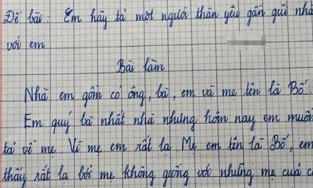 Đề bài: Em hãy tả một người thân yêu gần gũi nhấ
với em
Bài làm
Nhà em gồm có ông, bà, em và mẹ tên là Bố.
Em quý bà nhất nhà nhưng hôm nay em muốn
tả về mẹ. Vì mẹ em rất lạ. Mẹ em tên là Bố, em
thấy rất lạ bởi mẹ không giống với những mẹ của c